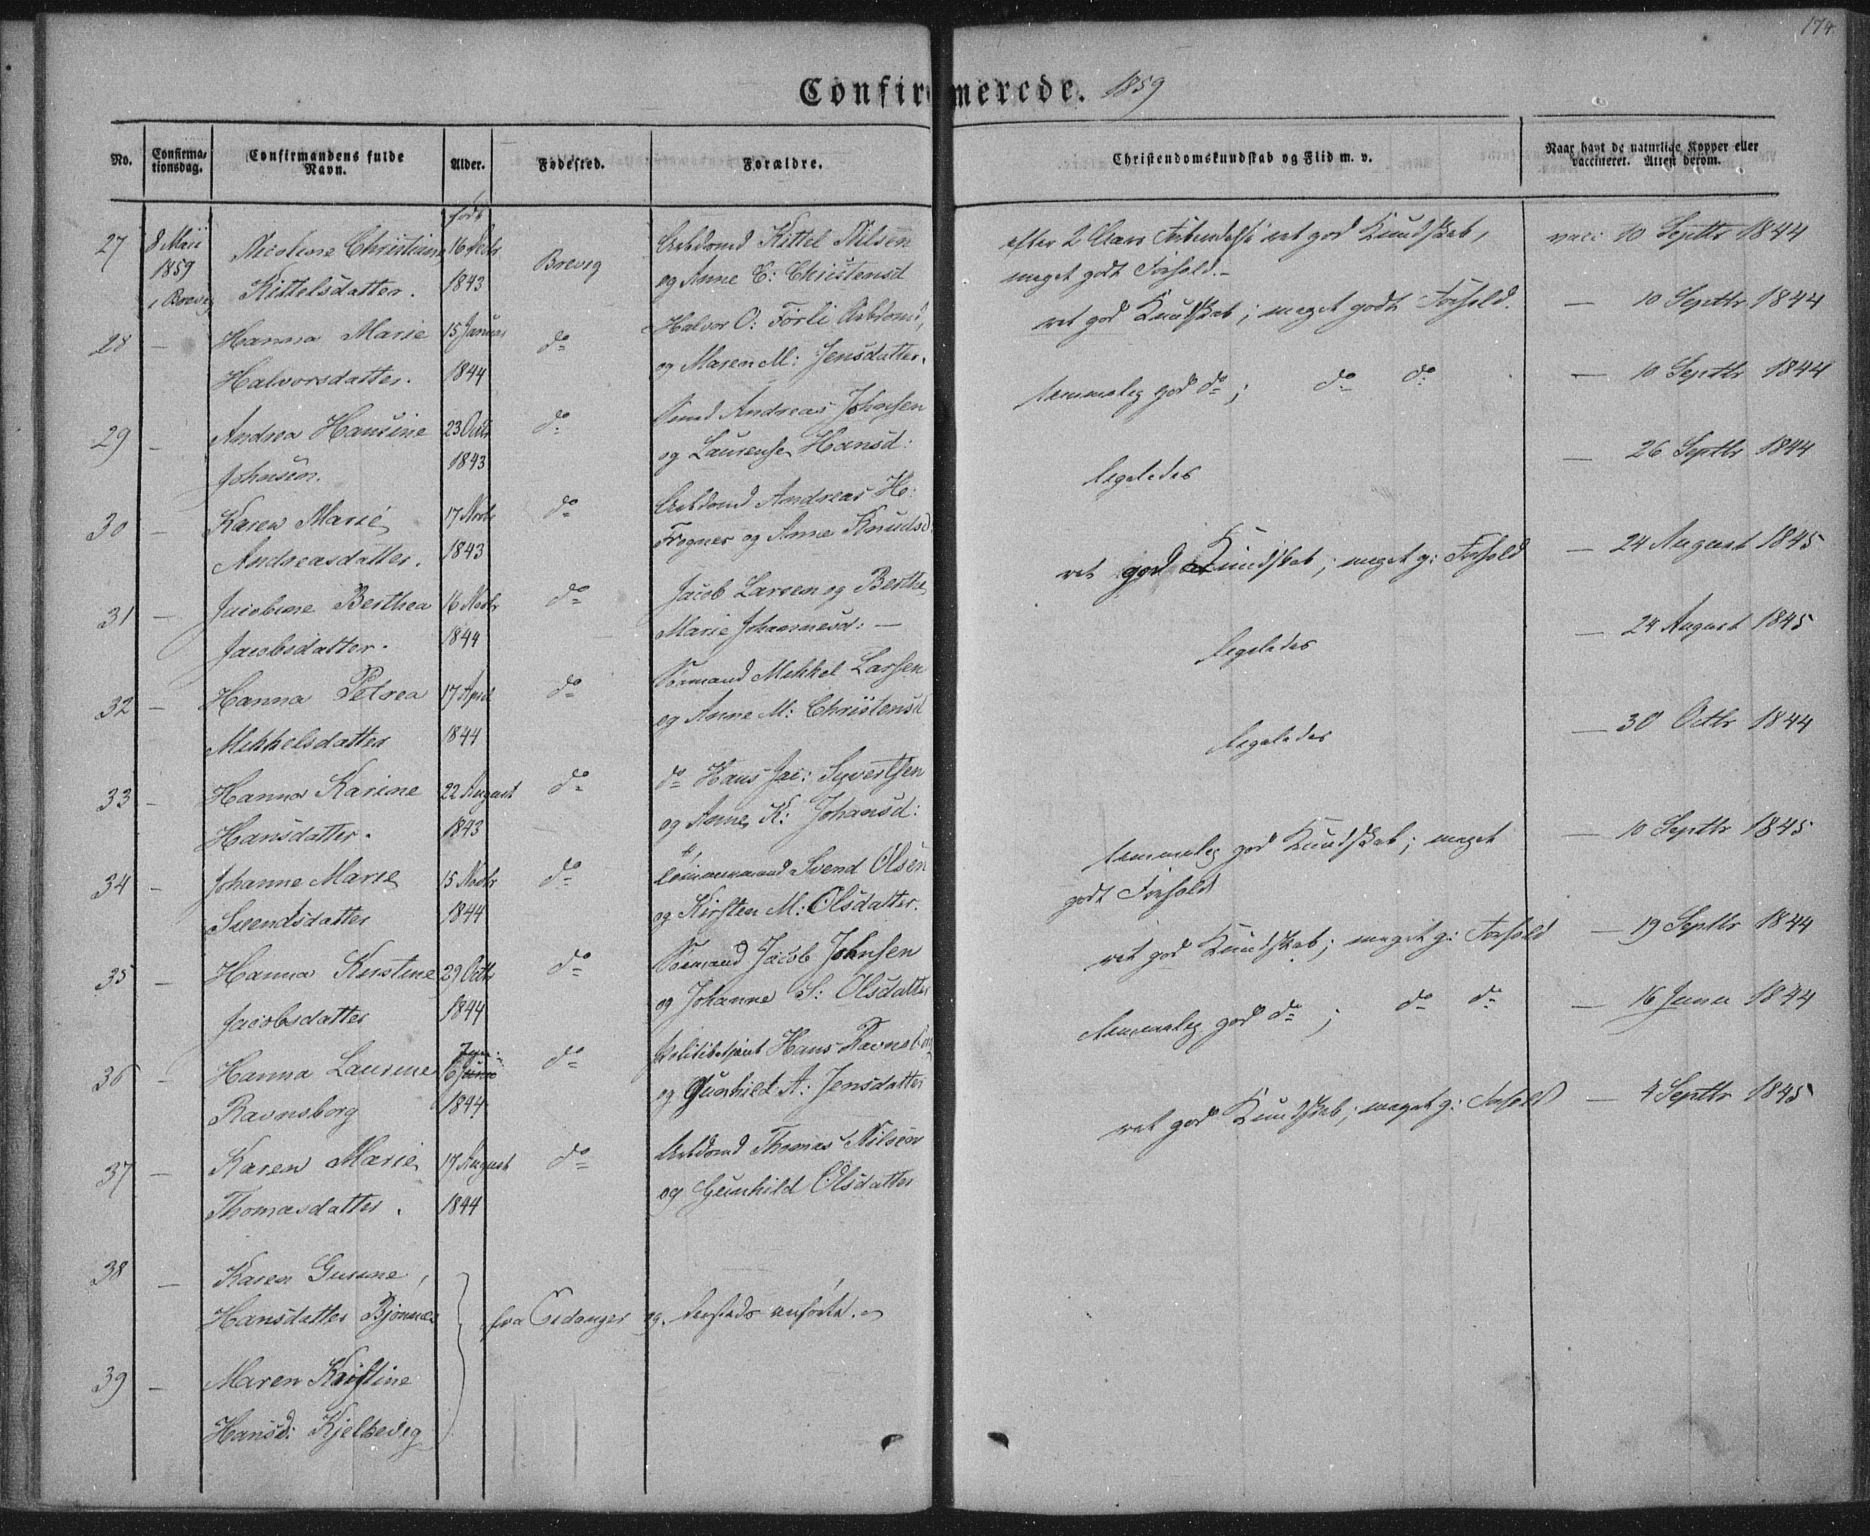 174.
Confirmerede. 1859
No.
Confirma-
tionsdag.
Confirmandens fulde
Navn.
Alder.
Fødested.
Forældre.
Christendomskundskab og Flid m. v.
Naar havt de naturlige Kopper eller
vaccineret. Attest derom.
født
27 8 Maii Nicoline Christiane 16 Brevig Arbdsmd Kittel Nilsen
1859 Kittelsdatter. 1843 og Anne C: Christensd
i Brevig
efter 2 ret god Kundskab,
meget godt Forhold.-
vacc 10 Septbr 1844
28 — Hanna Marie 15 Januar do Halvor O: Førli Arbdsmd,
Halvorsdatter. 1844 og Maren M: Jensdatter.
ret god Kundskab; meget godt Forhold.
— 10 Septbr 1844
29 — Andrea Hansine 23 Octbr do Sømd Andreas Johnsen
Johnsen. 1843 og Laurense Hansd:
temmelig god do; do do
— 10 Septbr 1844
30 — Karen Marie 17 Novbr do Arbdsmd Andreas H:
Andreasdatter. 1843 Frogner og Anne Knudsd.
ligeledes
— 26 Septbr 1844
31 — Jacobine Berthea 16 Novbr do Jacob Larsen og Berthe
Jacobsdatter. 1844 Marie Johannesd: —
ret god Kundskab; meget g: Forhold
— 24 August 1845
32 — Hanna Petrea 17 April do Sømand Mekkel Larsen
Mekkelsdatter 1844 og Anne M: Christensd
ligeledes
— 24 August 1845
33 — Hanna Karine 22 August do do Hans Jac: Syvertsen
Hansdatter. 1843 og Anne K: Johansd:
ligeledes
— 30 Octbr 1844
34 — Johanne Marie 15 Novbr do Tømmermand Svend Olsen
Svendsdatter 1844 og Kirsten M: Olsdatter.
temmelig god Kundskab; meget
godt Forhold
— 10 Septbr 1845
35 — Hanna Kirstine 29 Octbr do Sømand Jacob Johnsen
Jacobsdatter 1844 og Johanne S: Olsdatter
ret god Kundskab; meget g: Forhold
— 19 Septbr 1844
36 — Hanna Laurine 6 do Politibetjent Hans Ravnsborg
Ravnsborg 1844 og Gunhild A: Jensdatter
temmelig god do; do do
— 16 Junii 1844
37 — Karen Marie 17 August do Arbdsmd Thomas Nilsen
Thomasdatter. 1844 og Gunhild Olsdatter
ret god Kundskab; meget g: Forhold
— 4 Septbr 1845
38 — Karen Gurine,
Hansdatter Bjønnes fra Eidanger og dersteds anførte.
39 — Maren Kristine
Hansd: Kjelsevig